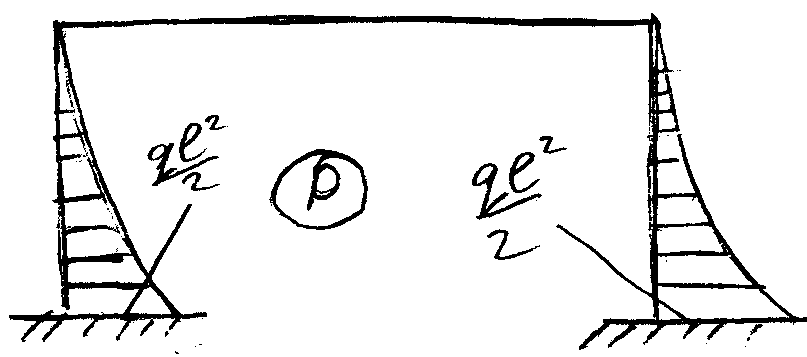 qℓ²/2
P
qℓ²/2